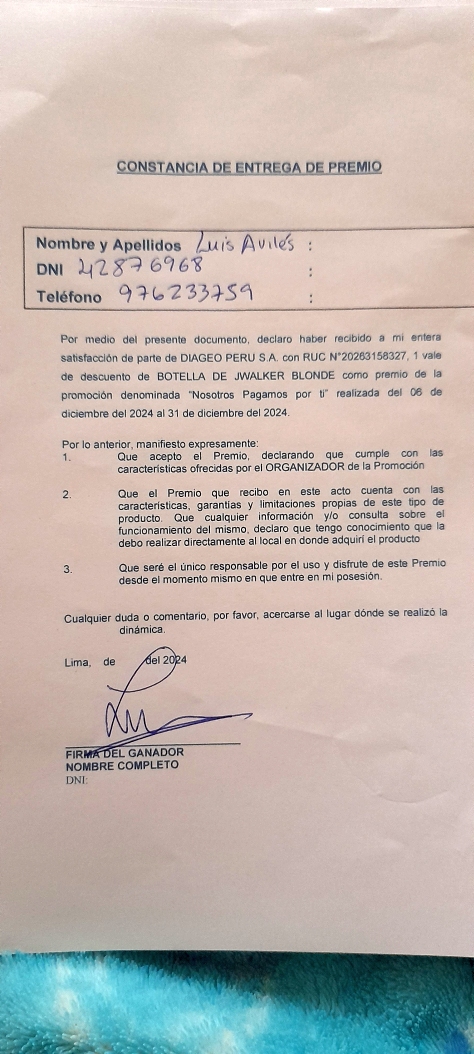 CONSTANCIA DE ENTREGA DE PREMIO
Nombre y Apellidos Luis Avilés :
DNI 42876968 :
Teléfono 976233759 :
Por medio del presente documento, declaro haber recibido a mi entera
satisfacción de parte de DIAGEO PERU S.A. con RUC N°20263158327, 1 vale
de descuento de BOTELLA DE JWALKER BLONDE como premio de la
promoción denominada "Nosotros Pagamos por ti" realizada del 06 de
diciembre del 2024 al 31 de diciembre del 2024.
Por lo anterior, manifiesto expresamente:
1. Que acepto el Premio, declarando que cumple con las
características ofrecidas por el ORGANIZADOR de la Promoción
2. Que el Premio que recibo en este acto cuenta con las
características, garantías y limitaciones propias de este tipo de
producto. Que cualquier información y/o consulta sobre el
funcionamiento del mismo, declaro que tengo conocimiento que la
debo realizar directamente al local en donde adquirí el producto
3. Que seré el único responsable por el uso y disfrute de este Premio
desde el momento mismo en que entre en mi posesión.
Cualquier duda o comentario, por favor, acercarse al lugar dónde se realizó la
dinámica.
Lima, de del 2024
FIRMA DEL GANADOR
NOMBRE COMPLETO
DNI: